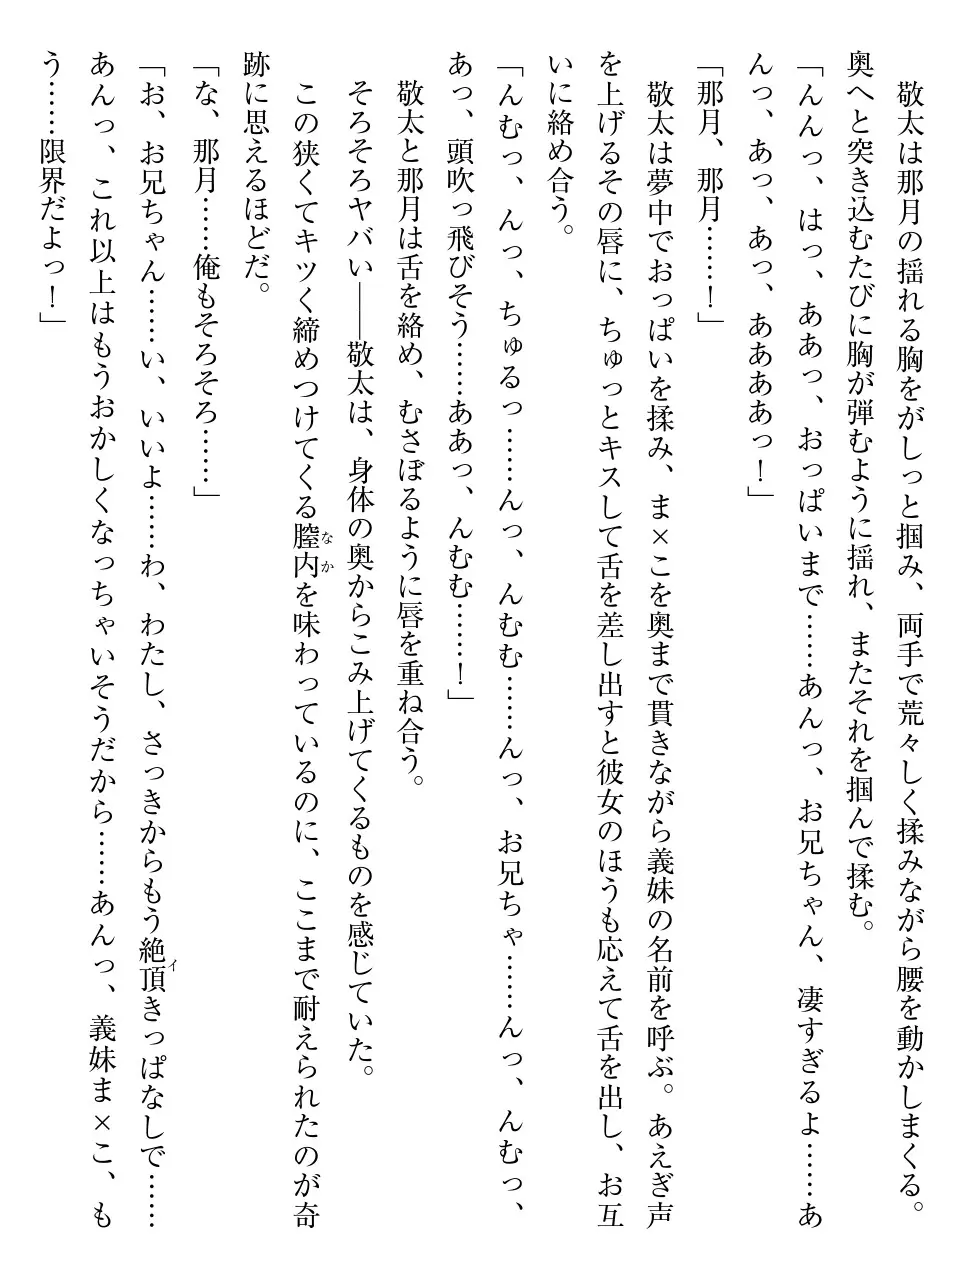 敬太は那月の揺れる胸をがしっと掴み、両手で荒々しく揉みながら腰を動かしまくる。
奥へと突き込むたびに胸が弾むように揺れ、またそれを掴んで揉む。
「んんっ、はっ、ああっ、おっぱいまで……あんっ、お兄ちゃん、凄すぎるよ……あ
んっ、あっ、あっ、ああああっ！」
「那月、那月……！」
敬太は夢中でおっぱいを揉み、ま×こを奥まで貫きながら義妹の名前を呼ぶ。あえぎ声
を上げるその唇に、ちゅっとキスして舌を差し出すと彼女のほうも応えて舌を出し、お互
いに絡め合う。
「んむっ、んっ、ちゅるっ……んっ、んむむ……んっ、お兄ちゃ……んっ、んむっ、
あっ、頭吹っ飛びそう……ああっ、んむむ……！」
敬太と那月は舌を絡め、むさぼるように唇を重ね合う。
そろそろヤバい――敬太は、身体の奥からこみ上げてくるものを感じていた。
この狭くてキツく締めつけてくる膣内なかを味わっているのに、ここまで耐えられたのが奇
跡に思えるほどだ。
「な、那月……俺もそろそろ……」
「お、お兄ちゃん……い、いいよ……わ、わたし、さっきからもう絶頂イきっぱなしで……
あんっ、これ以上はもうおかしくなっちゃいそうだから……あんっ、義妹ま×こ、も
う……限界だよっ！」